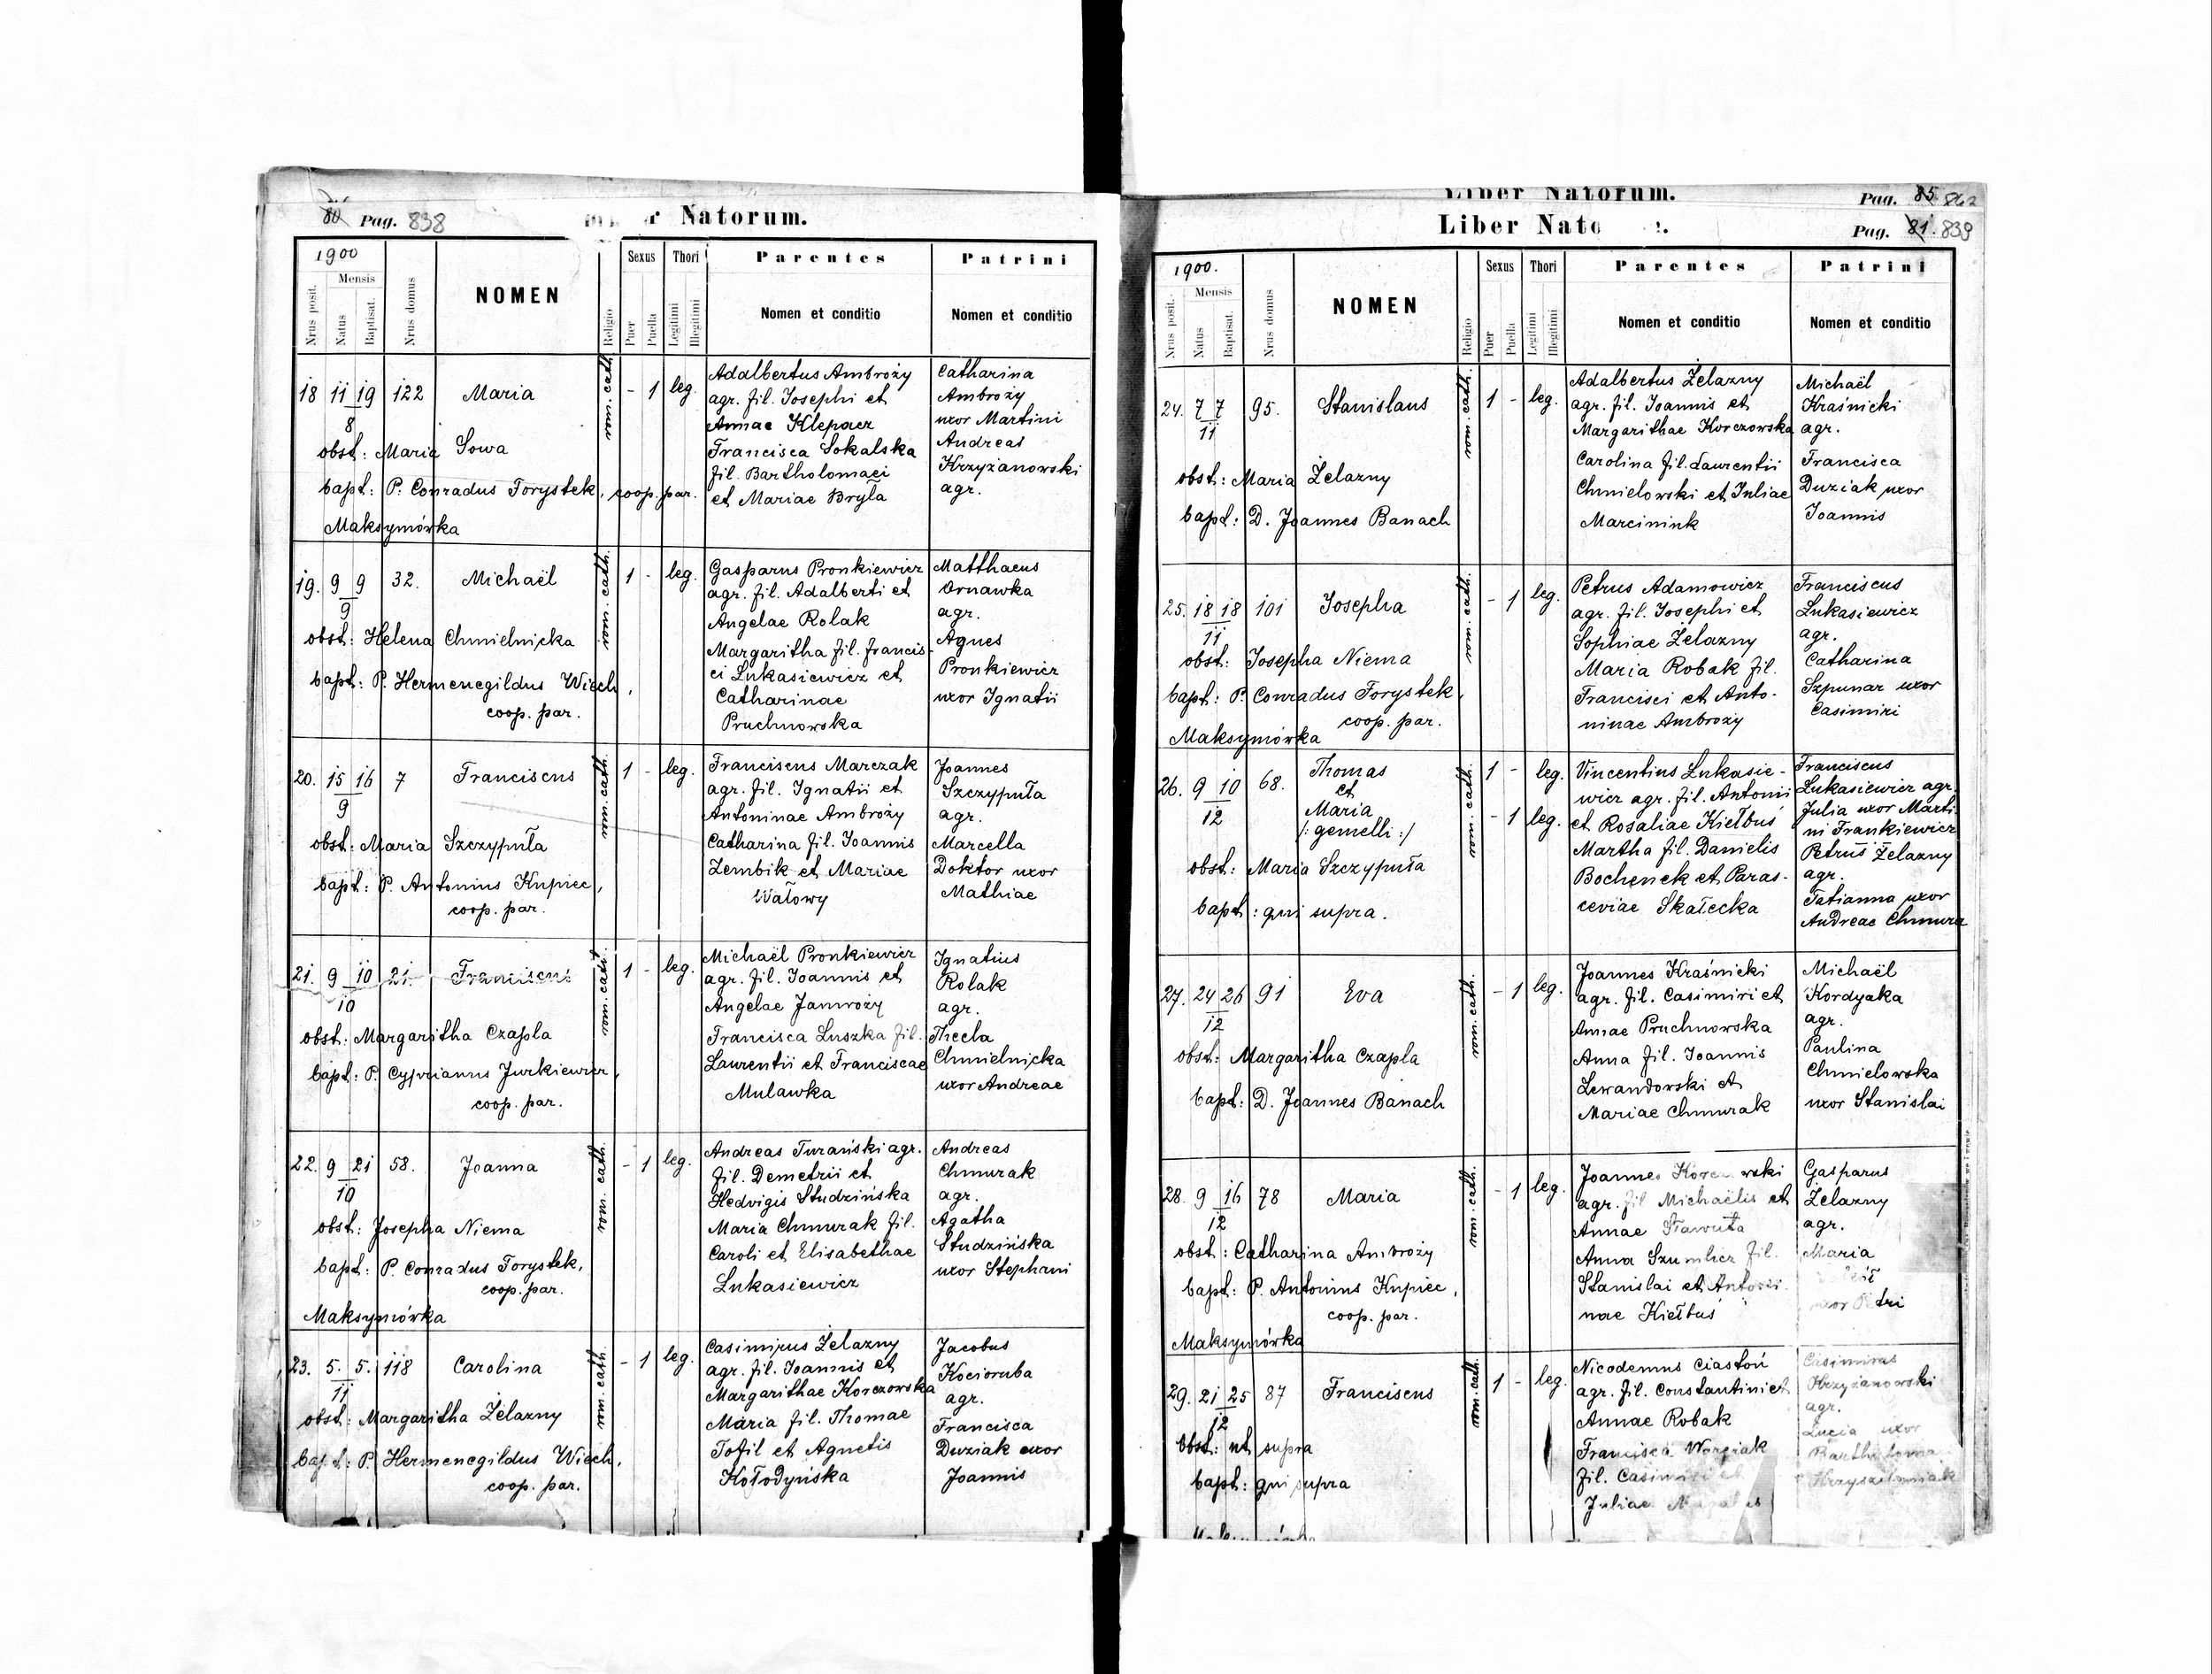 80 Pag. 838
r Natorum.
1900
Nrus posit.
Mensis
Natus
Baptisat.
Nrus domus
NOMEN
Religio
Sexus
Puer
Puella
Thori
Legitimi
Illegitimi
Parentes
Nomen et conditio
Patrini
Nomen et conditio
18 11 19 122 Maria rom. cath. - 1 leg.
8
obst: Maria Sowa
bapt: P. Conradus Forystek, coop. par.
Maksymówka
Adalbertus Ambroży
agr. fil. Josephi et
Annae Klepacz
Francisca Sokalska
fil. Bartholomaei
et Mariae Bryła
Catharina
Ambroży
uxor Martini
Andreas
Krzyżanowski
agr.
19. 9 9 32. Michaël rom. cath. 1 - leg.
9
obst: Helena Chmielnicka
bapt: P. Hermenegildus Wiech,
coop. par.
Gasparus Pronkiewicz
agr. fil. Adalberti et
Angelae Rolak
Margaritha fil. Francis-
ci Lukasiewicz et
Catharinae
Pruchnowska
Matthaeus
Ornawka
agr.
Agnes
Pronkiewicz
uxor Ignatii
20. 15 16 7 Franciscus rom. cath. 1 - leg.
9
obst: Maria Szczypuła
bapt: P. Antonius Kupiec,
coop. par.
Franciscus Marczak
agr. fil. Ignatii et
Antoninae Ambroży
Catharina fil. Joannis
Zembik et Mariae
Wałowy
Joannes
Szczypuła
agr.
Marcella
Doktor uxor
Mathiae
21. 9 10 21. Franciscus rom. cath. 1 - leg.
10
obst: Margaritha Czapla
bapt: P. Cyprianus Jurkiewicz,
coop. par.
Michaël Pronkiewicz
agr. fil. Joannis et
Angelae Jamroży
Francisca Luszka fil.
Laurentii et Franciscae
Mulawka
Ignatius
Rolak
agr.
Thecla
Chmielnicka
uxor Andreae
22. 9 21 58. Joanna rom. cath. - 1 leg.
10
obst: Josepha Niema
bapt: P. Conradus Forystek,
coop. par.
Maksymówka
Andreas Turański agr.
fil. Demetrii et
Hedvigis Studzińska
Maria Chmurak fil.
Caroli et Elisabethae
Lukasiewicz
Andreas
Chmurak
agr.
Agatha
Studzińska
uxor Stephani
23. 5. 5. 118 Carolina rom. cath. - 1 leg.
11
obst: Margaritha Żelazny
bapt: P. Hermenegildus Wiech,
coop. par.
Casimirus Żelazny
agr. fil. Joannis et
Margarithae Korczowska
Maria fil. Thomae
Tofil et Agnetis
Kołodyńska
Jacobus
Kocioruba
agr.
Francisca
Duziak uxor
Joannis
Liber Natorum.
Pag. 85 862
Liber Nato
Pag. 81. 839
1900.
Nrus posit.
Mensis
Natus
Baptisat.
Nrus domus
NOMEN
Religio
Sexus
Puer
Puella
Thori
Legitimi
Illegitimi
Parentes
Nomen et conditio
Patrini
Nomen et conditio
24. 7 7 95. Stanislaus rom. cath. 1 - leg.
11
obst: Maria Żelazny
bapt: D. Joannes Banach
Adalbertus Żelazny
agr. fil. Joannis et
Margarithae Korczowska
Carolina fil. Laurentii
Chmielowski et Juliae
Marciniuk
Michaël
Kraśnicki
agr.
Francisca
Duziak uxor
Joannis
25. 18 18 101 Josepha rom. cath. - 1 leg.
11
obst: Josepha Niema
bapt: P. Conradus Forystek,
coop. par.
Maksymówka
Petrus Adamowicz
agr. fil. Josephi et
Sophiae Żelazny
Maria Robak fil.
Francisci et Anto-
ninae Ambroży
Franciscus
Lukasiewicz
agr.
Catharina
Szpunar uxor
Casimiri
26. 9 10 68. Thomas rom. cath. 1 - leg.
12
et
Maria - 1 leg.
/: gemelli :/
obst: Maria Szczypuła
bapt: qui supra.
Vincentius Lukasie-
wicz agr. fil. Antonii
et Rosaliae Kiełbuś
Martha fil. Danielis
Bochenek et Paras-
ceviae Skałecka
Franciscus
Lukasiewicz agr.
Julia uxor Marti-
ni Frankiewicz
Petrus Żelazny
agr.
Tatianna uxor
Andreae Chmura
27. 24 26 91 Eva rom. cath. - 1 leg.
12
obst: Margaritha Czapla
bapt: D. Joannes Banach
Joannes Kraśnicki
agr. fil. Casimiri et
Annae Pruchnowska
Anna fil. Joannis
Lewandowski et
Mariae Chmurak
Michaël
Kordyaka
agr.
Paulina
Chmielowska
uxor Stanislai
28. 9 16 78 Maria rom. cath. - 1 leg.
12
obst: Catharina Ambroży
bapt: P. Antonius Kupiec,
coop. par.
Maksymówka
Joannes
agr. fil Michaëlis et
Annae
Anna fil.
Stanislai et Antoni-
nae Kiełbuś
Gasparus
Żelazny
agr.
Maria
uxor Petri
29. 21 25 87 Franciscus rom. cath. 1 - leg.
12
obst: ut supra
bapt: qui supra
Nicodemus Ciastoń
agr. fil. Constantini et
Annae Robak
Francisca
fil. Casimiri et
Juliae
Casimirus
Krzyżanowski
agr.
Lucia uxor